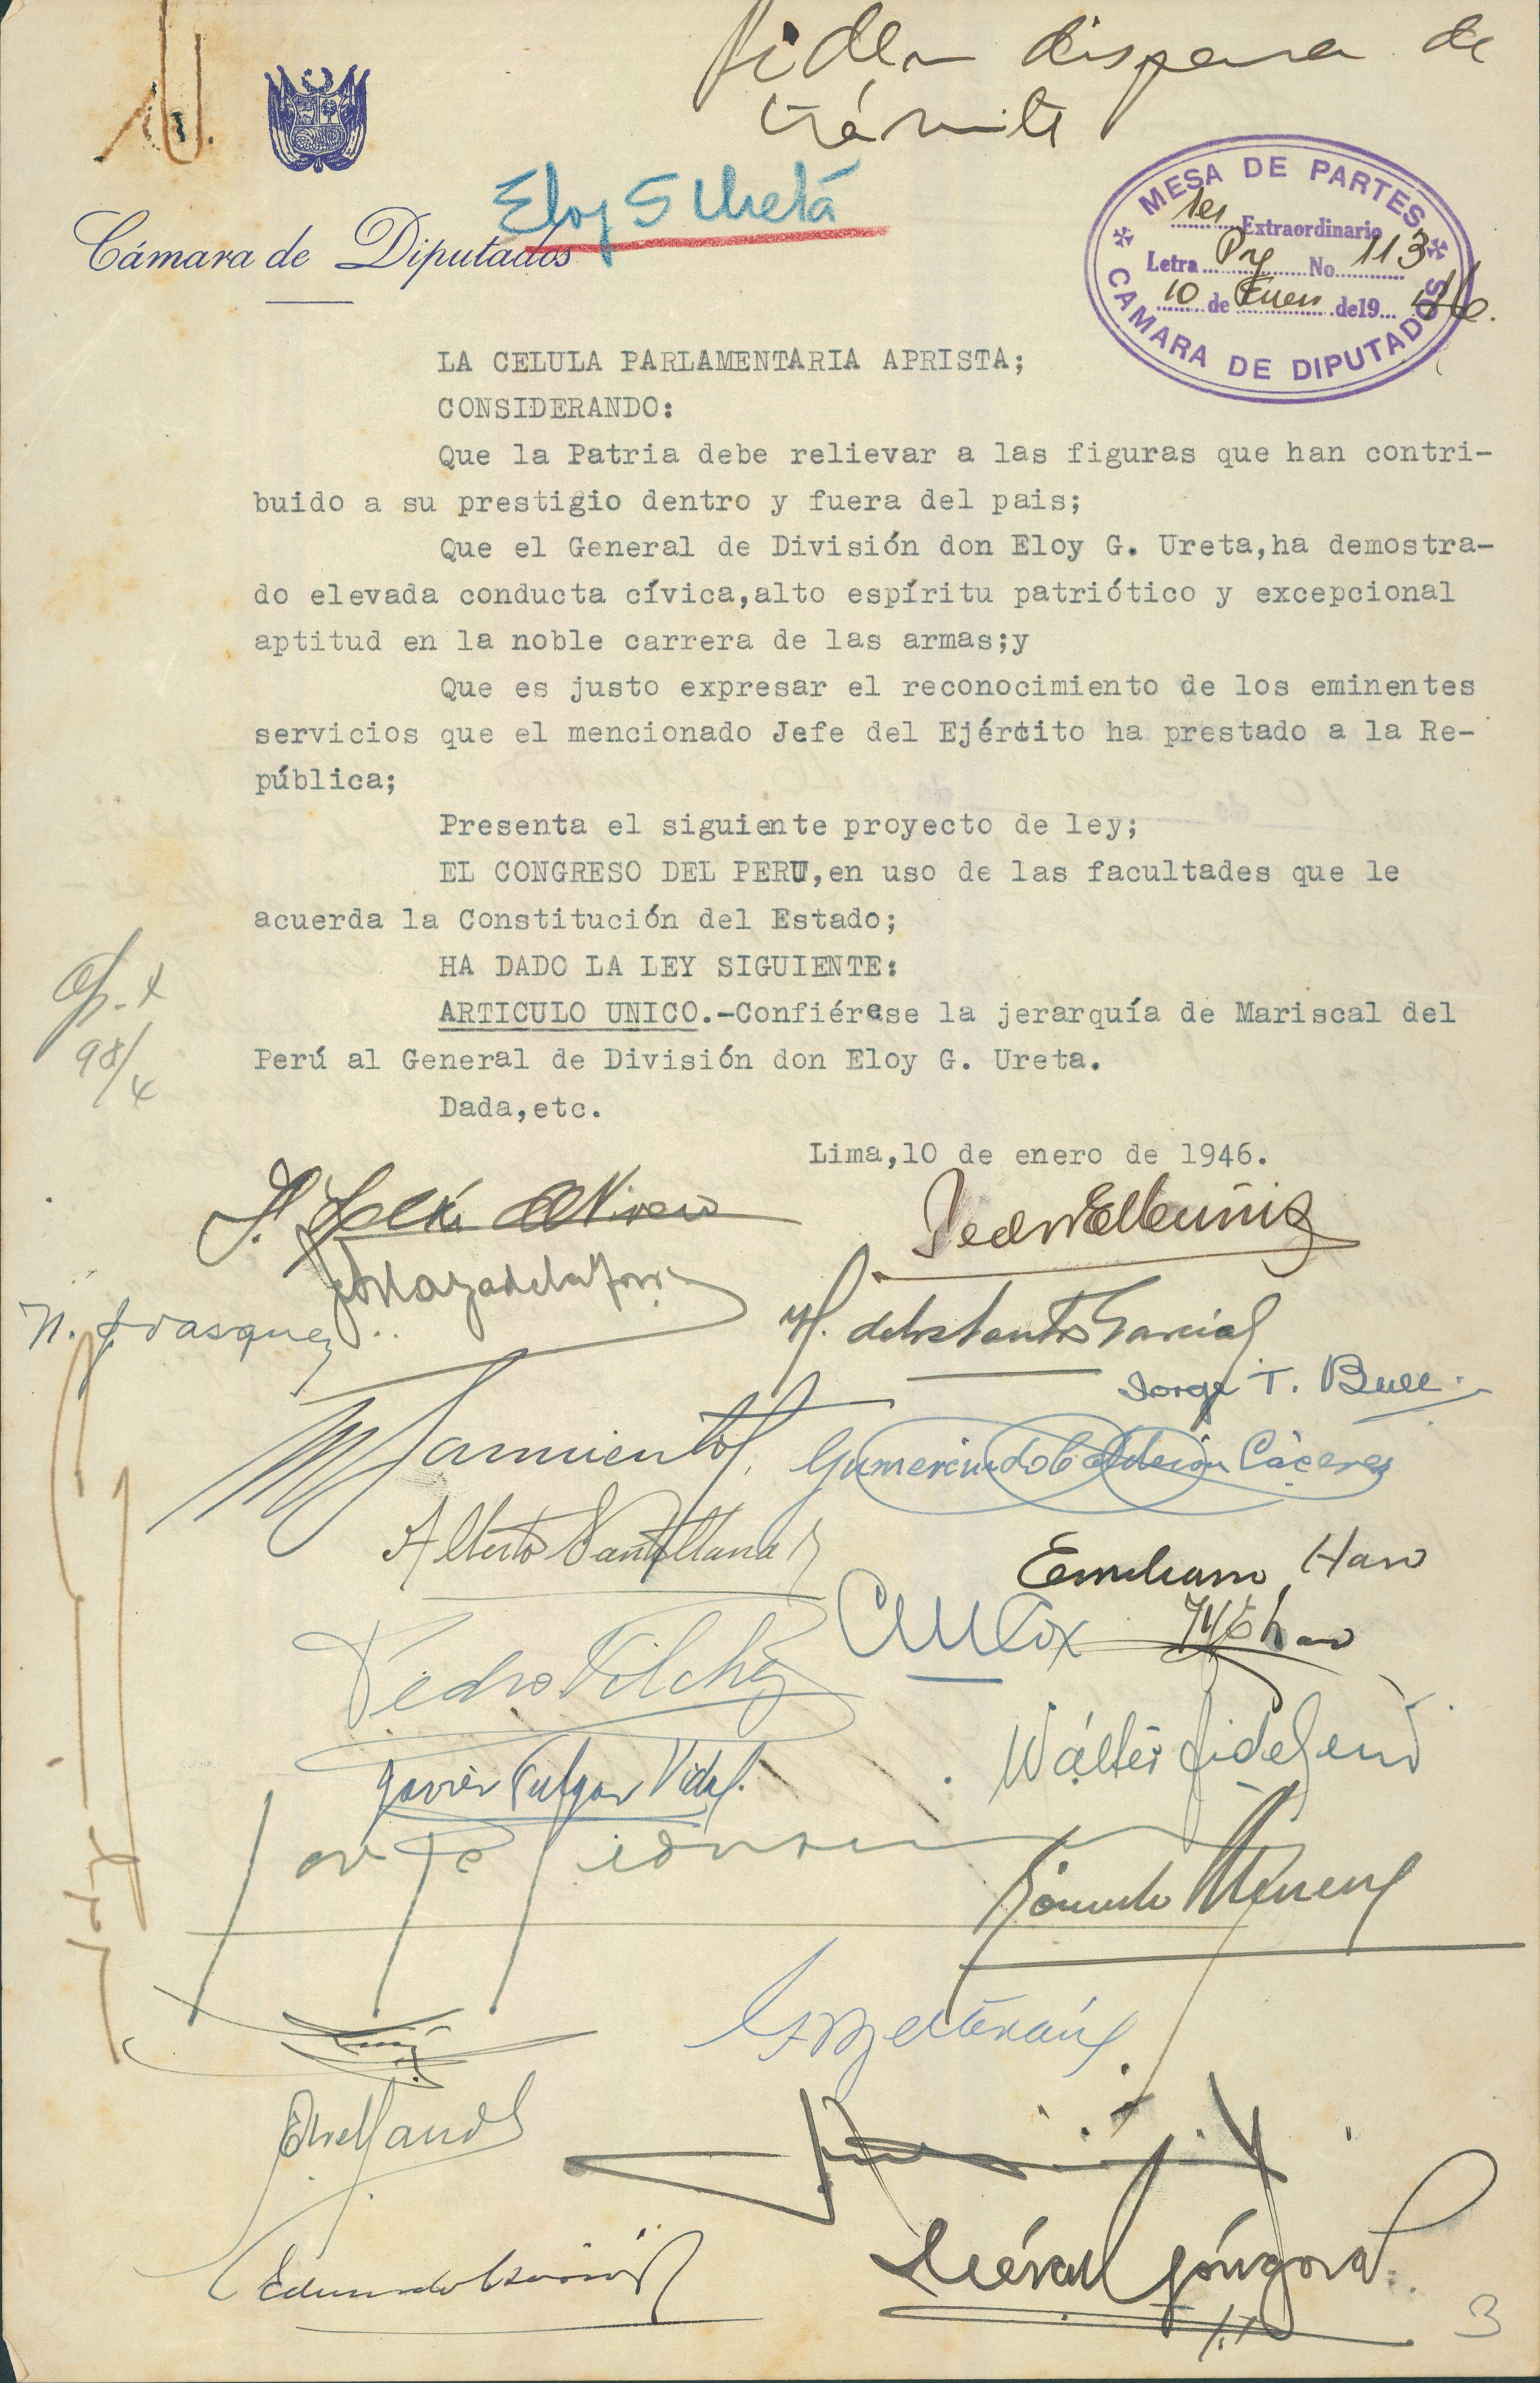 Piden dispensa de
trámite
Eloy G Ureta
Cámara de Diputados
MESA DE PARTES
1er Extraordinario
Letra Py No 113
10 de Enero de 19 46.
CAMARA DE DIPUTADOS
LA CELULA PARLAMENTARIA APRISTA;
CONSIDERANDO:
Que la Patria debe relievar a las figuras que han contri-
buido a su prestigio dentro y fuera del pais;
Que el General de División don Eloy G. Ureta,ha demostra-
do elevada conducta cívica,alto espíritu patriótico y excepcional
aptitud en la noble carrera de las armas;y
Que es justo expresar el reconocimiento de los eminentes
servicios que el mencionado Jefe del Ejército ha prestado a la Re-
pública;
Presenta el siguiente proyecto de ley;
EL CONGRESO DEL PERU,en uso de las facultades que le
acuerda la Constitución del Estado;
HA DADO LA LEY SIGUIENTE:
ARTICULO UNICO.-Confiérese la jerarquía de Mariscal del
Perú al General de División don Eloy G. Ureta.
Dada,etc.
Lima,10 de enero de 1946.
98/4
Pedro E Muñiz
M. de los Santos Garcia
Jorge T. Buee
Sarmiento
Gumercindo Calderón Cáceres
Alberto Santillana
Emiliano Haro
Pedro Vilchez
Javier Pulgar Vidal.
Rómulo Meneses
Góngora
3